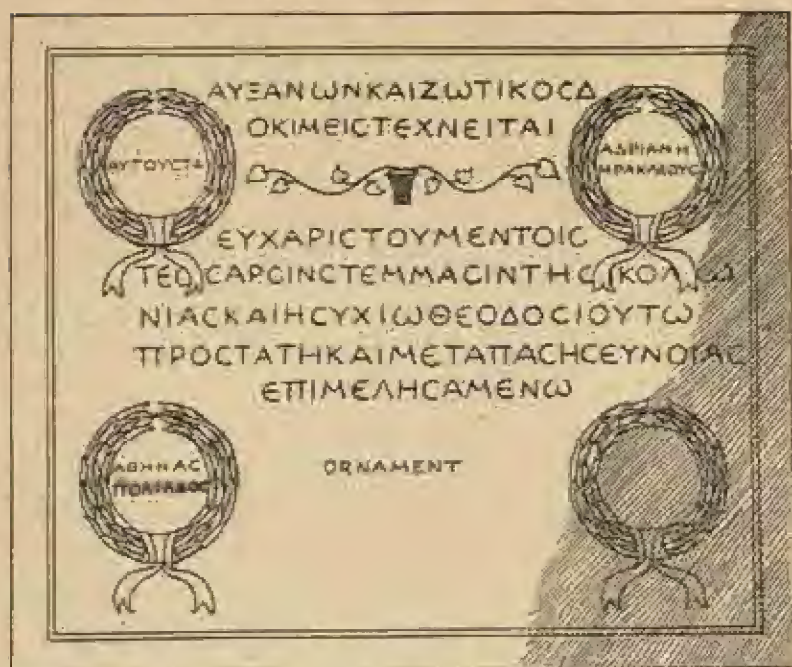 ΑΥΞΑΝωΝΚΑΙΖωΤΙΚΟϹΔ
ΟΚΙΜΕΙϹΤΕΧΝΕΙΤΑΙ
ΑΥΓΟΥϹΤΑ
ΑΔΡΙΑΝΗ
ΗΡΑΚΛΕΟΥϹ
ΕΥΧΑΡΙϹΤΟΥΜΕΝΤΟΙϹ
ΤΕϹϹΑΡϹΙΝϹΤΕΜΜΑϹΙΝΤΗϹΚΟΛω
ΝΙΑϹΚΑΙΗϹΥΧΙωΘΕΟΔΟϹΙΟΥΤω
ΠΡΟϹΤΑΤΗΚΑΙΜΕΤΑΠΑϹΗϹΕΥΝΟΙΑϹ
ΕΠΙΜΕΛΗϹΑΜΕΝω
ΑΘΗΝΑϹ
ΠΟΛΙΑΔΟϹ
ORNAMENT